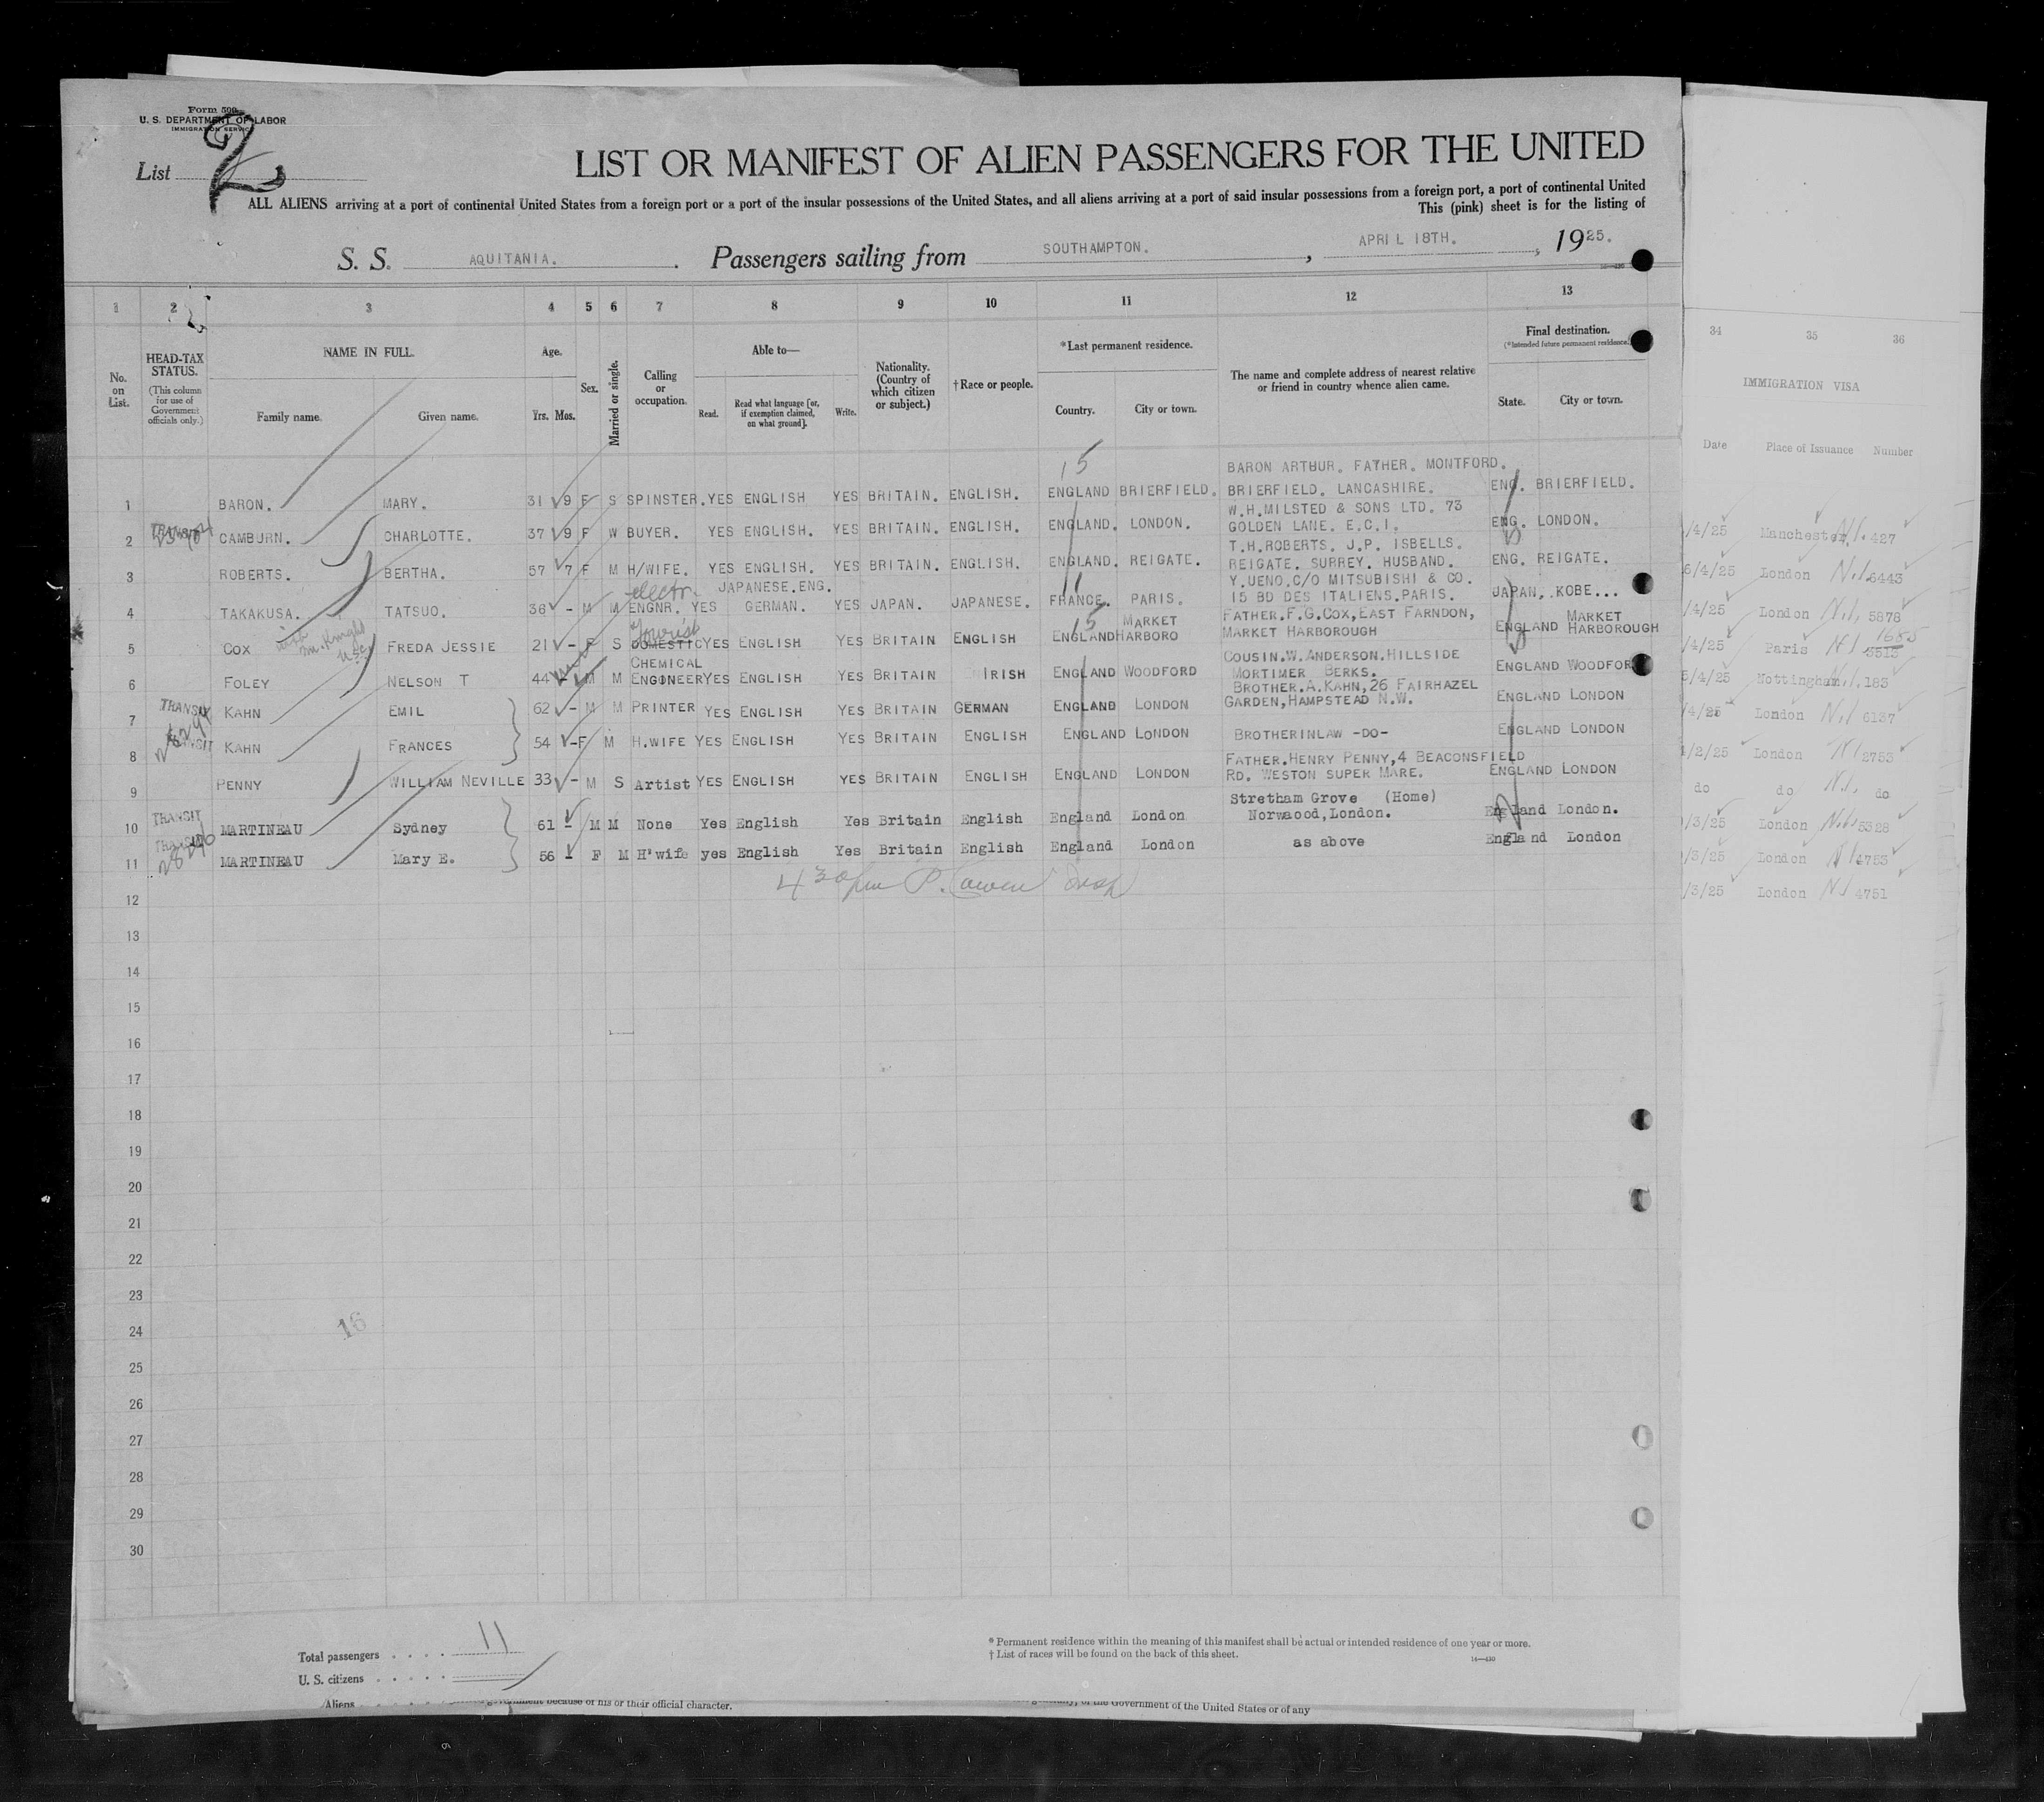 Form 500
U. S. DEPARTMENT OF LABOR
IMMIGRATION SERVICE
List 2
LIST OR MANIFEST OF ALIEN PASSENGERS FOR THE UNITED
ALL ALIENS arriving at a port of continental United States from a foreign port or a port of the insular possessions of the United States, and all aliens arriving at a port of said insular possessions from a foreign port, a port of continental United
This (pink) sheet is for the listing of
S. S. AQUITANIA. Passengers sailing from SOUTHAMPTON. , APRIL 18TH. , 1925.
1 2 3 4 5 6 7 8 9 10 11 12 13
No. on List.
HEAD-TAX STATUS. (This column for use of Government officials only.)
NAME IN FULL.
Family name. Given name.
Age.
Yrs. Mos.
Sex.
Married or single.
Calling or occupation.
Able to—
Read. Read what language [or, if exemption claimed, on what ground]. Write.
Nationality. (Country of which citizen or subject.)
†Race or people.
*Last permanent residence.
Country. City or town.
The name and complete address of nearest relative or friend in country whence alien came.
Final destination.
(*Intended future permanent residence.)
State. City or town.
15
1 BARON. MARY. 31 9 F S SPINSTER. YES ENGLISH YES BRITAIN. ENGLISH. ENGLAND BRIERFIELD. BARON ARTHUR. FATHER. MONTFORD. BRIERFIELD. LANCASHIRE. ENG. BRIERFIELD.
2 TRANSIT CAMBURN. CHARLOTTE. 37 9 F W BUYER. YES ENGLISH. YES BRITAIN. ENGLISH. ENGLAND. LONDON. W.H.MILSTED & SONS LTD. 73 GOLDEN LANE. E.C.I. ENG. LONDON.
3 ROBERTS. BERTHA. 57 7 F M H/WIFE. YES ENGLISH. YES BRITAIN. ENGLISH. ENGLAND. REIGATE. T.H.ROBERTS. J.P. ISBELLS. REIGATE. SURREY. HUSBAND. ENG. REIGATE.
4 TAKAKUSA. TATSUO. 36 - M M electr. ENGNR. YES JAPANESE.ENG. GERMAN. YES JAPAN. JAPANESE. FRANCE. PARIS. Y.UENO.C/O MITSUBISHI & CO. 15 BD DES ITALIENS.PARIS. JAPAN, KOBE...
15
5 COX with USC FREDA JESSIE 21 - F S Tourist DOMESTIC YES ENGLISH YES BRITAIN ENGLISH ENGLAND MARKET HARBORO FATHER.F.G.COX,EAST FARNDON, MARKET HARBOROUGH ENGLAND MARKET HARBOROUGH
6 FOLEY NELSON T 44 - M M CHEMICAL ENGINEER YES ENGLISH YES BRITAIN IRISH ENGLAND WOODFORD COUSIN.W.ANDERSON.HILLSIDE MORTIMER BERKS. ENGLAND WOODFOR
7 TRANSIT KAHN EMIL 62 - M M PRINTER YES ENGLISH YES BRITAIN GERMAN ENGLAND LONDON BROTHER.A.KAHN,26 FAIRHAZEL GARDEN,HAMPSTEAD N.W. ENGLAND LONDON
8 TRANSIT KAHN FRANCES 54 - F M H.WIFE YES ENGLISH YES BRITAIN ENGLISH ENGLAND LONDON BROTHERINLAW -DO- ENGLAND LONDON
9 PENNY WILLIAM NEVILLE 33 - M S Artist YES ENGLISH YES BRITAIN ENGLISH ENGLAND LONDON FATHER.HENRY PENNY,4 BEACONSFIELD RD. WESTON SUPER MARE. ENGLAND LONDON
10 TRANSIT MARTINEAU Sydney 61 - M M None Yes English Yes Britain English England London Stretham Grove (Home) Norwaood,London. England London.
11 TRANSIT MARTINEAU Mary E. 56 - F M H'wife yes English Yes Britain English England London as above England London
12
13
14
15
16
17
18
19
20
21
22
23
24
25
26
27
28
29
30
16
Total passengers . . . . 11
U. S. citizens . . . .
Aliens
* Permanent residence within the meaning of this manifest shall be actual or intended residence of one year or more.
† List of races will be found on the back of this sheet.
14—430
because of his or their official character.
of the Government of the United States or of any
34 35 36
IMMIGRATION VISA
Date Place of Issuance Number
/4/25 Manchester, N.I. 427
6/4/25 London N.I. 6443
/4/25 London N.I. 5878
/4/25 Paris N.I. 1685
5/4/25 Nottingham N.I. 183
/4/25 London N.I. 6137
/2/25 London N.I. 2753
do do N.I. do
/3/25 London N.I. 5328
/3/25 London N.I. 4753
/3/25 London N.I. 4751